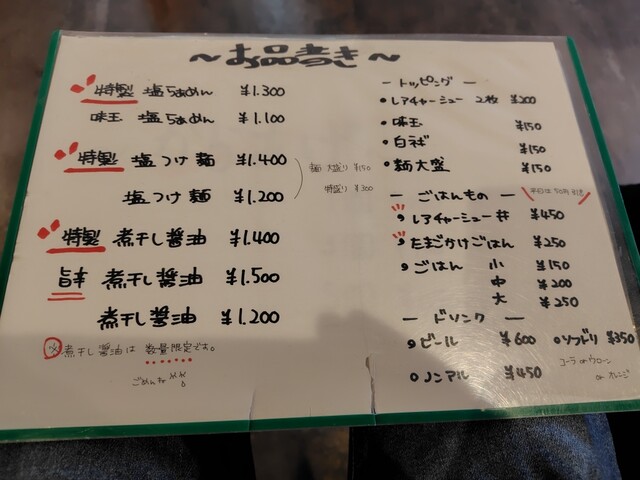 ～お品書き～
特製 塩らぁめん ¥1.300
味玉 塩らぁめん ¥1.100
特製 塩つけ麺 ¥1.400
塩つけ麺 ¥1.200
麺 大盛り ¥150
特盛り ¥300
特製 煮干し醤油 ¥1.400
旨辛 煮干し醤油 ¥1.500
煮干し醤油 ¥1.200
※煮干し醤油は 数量限定です。
ごめんね
ー トッピング ー
・レアチャーシュー 2枚 ¥200
・味玉 ¥150
・白ネギ ¥150
・麺大盛 ¥150
ー ごはんもの ー
平日は50円引き
・レアチャーシュー丼 ¥450
・たまごかけごはん ¥250
・ごはん 小 ¥150
中 ¥200
大 ¥250
ー ドリンク ー
・ビール ¥600
・ソフドリ ¥350
コーラ or ウーロン
or オレンジ
・ノンアル ¥450